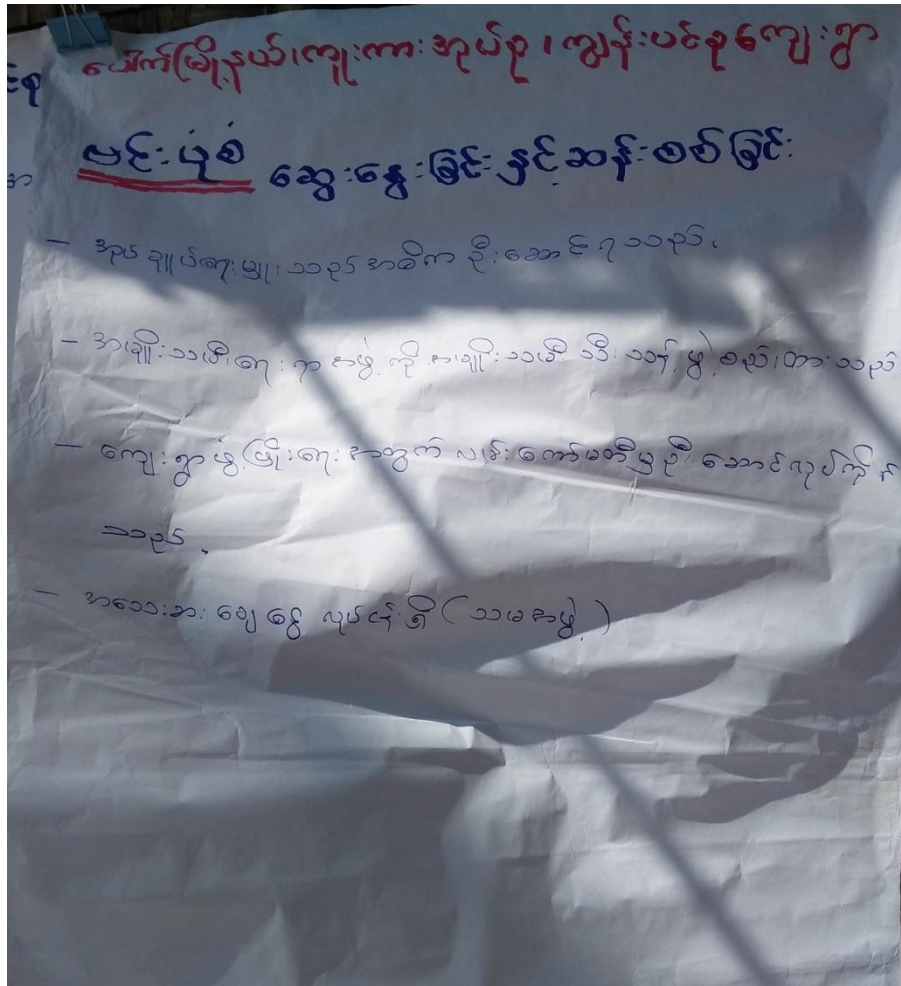 ပေါက်မြို့နယ်၊ ကူးကားအုပ်စု၊ ကျွန်းပင်စုကျေးရွာ
ဗင်းပုံစံ ဆွေးနွေးခြင်းနှင့်ဆန်းစစ်ခြင်း
- အုပ်ချုပ်ရေးမှူးသည် အဓိက ဦးဆောင်ရသည်၊
- အမျိုးသမီးရေးရာအဖွဲ့ကို အမျိုးသမီးသီးသန့်ဖွဲ့စည်းထားသည်
- ကျေးရွာဖွံ့ဖြိုးရေးအတွက် လမ်းကော်မတီမှဦးဆောင်လုပ်ကိုင်
သည်.
- အသေးစားချေးငွေ လုပ်ငန်းရှိ ( သမအဖွဲ့ )